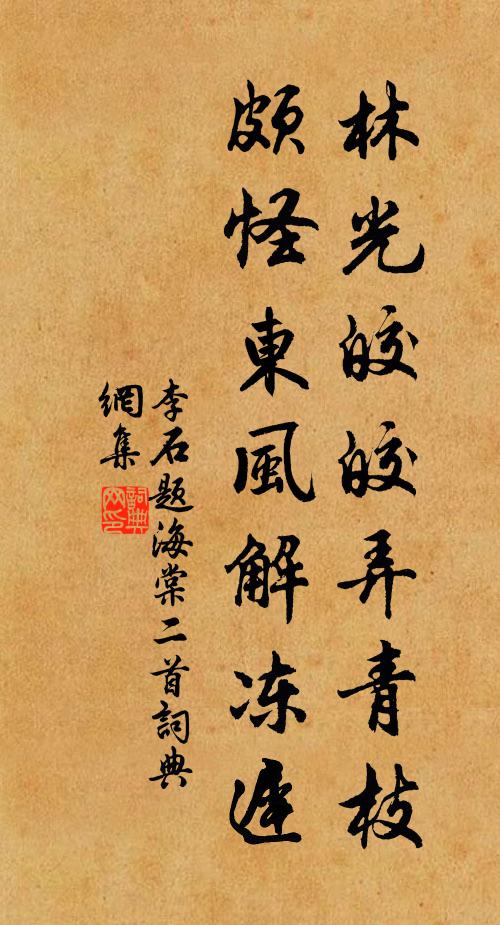 林光皎皎弄青枝
頗怪東風解冻遲
李石题海棠二首詞典
網集
詞典網印